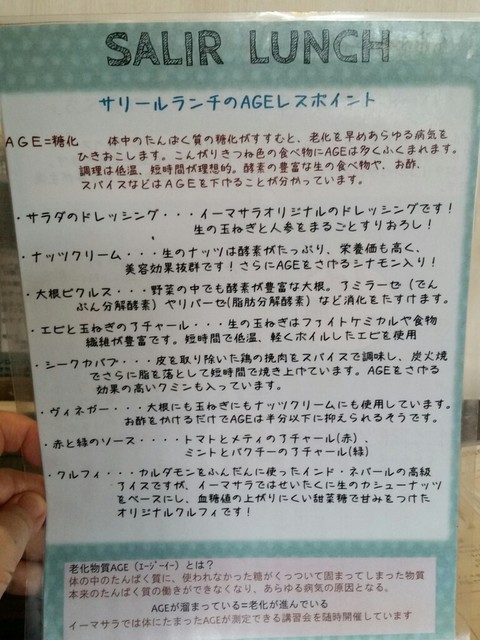 SALIR LUNCH
サリールランチのAGEレスポイント
AGE=糖化　体中のたんぱく質の糖化がすすむと、老化を早めあらゆる病気を
ひきおこします。こんがりきつね色の食べ物にAGEは多くふくまれます。
調理は低温、短時間が理想的。酵素の豊富な生の食べ物や、お酢、
スパイスなどはAGEを下げることが分かっています。
・サラダのドレッシング・・・イーマサラオリジナルのドレッシングです！
生の玉ねぎと人参をまるごとすりおろし！
・ナッツクリーム・・・生のナッツは酵素がたっぷり、栄養価も高く、
美容効果抜群です！さらにAGEをさげるシナモン入り！
・大根ピクルス・・・野菜の中でも酵素が豊富な大根。アミラーゼ（でん
ぷん分解酵素）やリパーゼ(脂肪分解酵素）など消化をたすけます。
・エビと玉ねぎのアチャール・・・生の玉ねぎはファイトケミカルや食物
繊維が豊富です。短時間で低温、軽くボイルしたエビを使用
・シークカバブ・・・皮を取り除いた鶏の挽肉をスパイスで調味し、炭火焼
でさらに脂を落として短時間で焼き上げています。AGEをさげる
効果の高いクミンも入っています。
・ヴィネガー・・・大根にも玉ねぎにもナッツクリームにも使用しています。
お酢をかけるだけでAGEは半分以下に抑えられるそうです。
・赤と緑のソース・・・・トマトとメティのアチャール(赤）、
ミントとパクチーのアチャール(緑)
・クルフィ・・・カルダモンをふんだんに使ったインド・ネパールの高級
アイスですが、イーマサラではぜいたくに生のカシューナッツ
をベースにし、血糖値の上がりにくい甜菜糖で甘みをつけた
オリジナルクルフィです！
老化物質AGE（ｴｰｼﾞｰｲｰ）とは？
体の中のたんぱく質に、使われなかった糖がくっついて固まってしまった物質
本来のたんぱく質の働きができなくなり、あらゆる病気の原因となる。
AGEが溜まっている=老化が進んでいる
イーマサラでは体にたまったAGEが測定できる講習会を随時開催しています